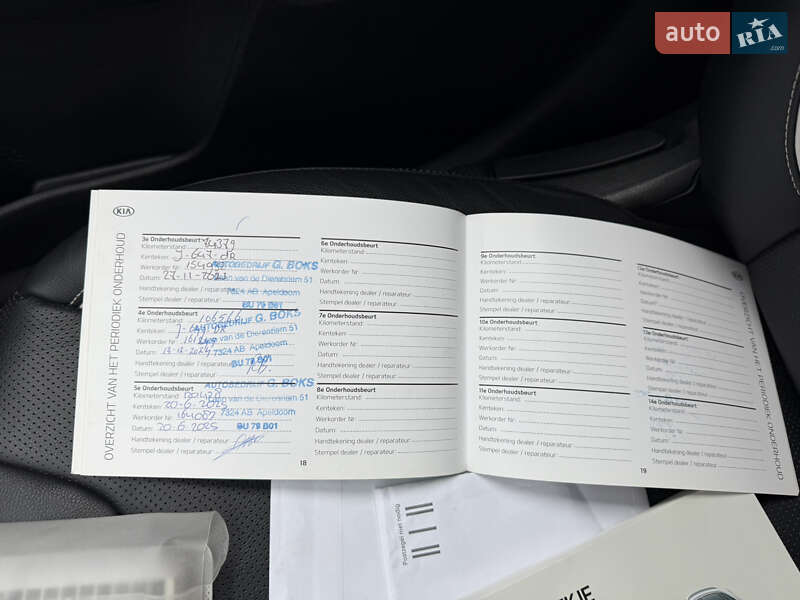 auto RIA
.com
KIA
OVERZICHT VAN HET PERIODIEK ONDERHOUD
3e Onderhoudsbeurt
Kilometerstand:
Kenteken: J-647-dR
Werkorder Nr:
Datum: 27-11-2023
Handtekening dealer / reparateur:
Stempel dealer / reparateur:
AUTOBEDRIJF G. BOKS
Laan van de Dierenriem 51
7324 AB Apeldoorn
BU 79 B01
4e Onderhoudsbeurt
Kilometerstand:
Kenteken:
Werkorder Nr:
Datum: 13-12-2024
Handtekening dealer / reparateur:
Stempel dealer / reparateur:
AUTOBEDRIJF G. BOKS
Laan van de Dierenriem 51
7324 AB Apeldoorn
BU 79 B01
5e Onderhoudsbeurt
Kilometerstand:
Kenteken: 20-6-2025
Werkorder Nr: 164087
Datum: 20-6-2025
Handtekening dealer / reparateur:
Stempel dealer / reparateur:
AUTOBEDRIJF G. BOKS
Laan van de Dierenriem 51
7324 AB Apeldoorn
BU 79 B01
6e Onderhoudsbeurt
Kilometerstand:
Kenteken:
Werkorder Nr:
Datum:
Handtekening dealer / reparateur:
Stempel dealer / reparateur:
7e Onderhoudsbeurt
Kilometerstand:
Kenteken:
Werkorder Nr:
Datum:
Handtekening dealer / reparateur:
Stempel dealer / reparateur:
8e Onderhoudsbeurt
Kilometerstand:
Kenteken:
Werkorder Nr:
Datum:
Handtekening dealer / reparateur:
Stempel dealer / reparateur:
18
9e Onderhoudsbeurt
Kilometerstand:
Kenteken:
Werkorder Nr:
Datum:
Handtekening dealer / reparateur:
Stempel dealer / reparateur:
10e Onderhoudsbeurt
Kilometerstand:
Kenteken:
Werkorder Nr:
Datum:
Handtekening dealer / reparateur:
Stempel dealer / reparateur:
11e Onderhoudsbeurt
Kilometerstand:
Kenteken:
Werkorder Nr:
Datum:
Handtekening dealer / reparateur:
Stempel dealer / reparateur:
12e Onderhoudsbeurt
Kilometerstand:
Kenteken:
Werkorder Nr:
Datum:
Handtekening dealer / reparateur:
Stempel dealer / reparateur:
13e Onderhoudsbeurt
Kilometerstand:
Kenteken:
Werkorder Nr:
Datum:
Handtekening dealer / reparateur:
Stempel dealer / reparateur:
14e Onderhoudsbeurt
Kilometerstand:
Kenteken:
Werkorder Nr:
Datum:
Handtekening dealer / reparateur:
Stempel dealer / reparateur:
19
KIA
OVERZICHT VAN HET PERIODIEK ONDERHOUD
Postzegel niet nodig